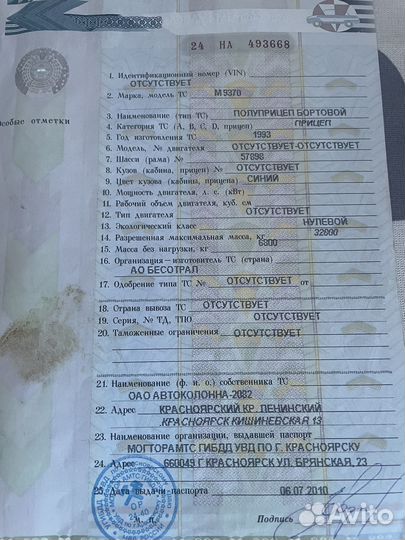 24 НА 493668
Особые отметки
1. Идентификационный номер (VIN)
ОТСУТСТВУЕТ
2. Марка, модель ТС М9370
3. Наименование (тип ТС) ПОЛУПРИЦЕП БОРТОВОЙ
4. Категория ТС (A, B, C, D, прицеп) ПРИЦЕП
5. Год изготовления ТС 1993
6. Модель, № двигателя ОТСУТСТВУЕТ-ОТСУТСТВУЕТ
7. Шасси (рама) № 57898
8. Кузов (кабина, прицеп) № ОТСУТСТВУЕТ
9. Цвет кузова (кабины, прицепа) СИНИЙ
10. Мощность двигателя, л. с. (кВт)
11. Рабочий объем двигателя, куб. см
12. Тип двигателя ОТСУТСТВУЕТ
13. Экологический класс НУЛЕВОЙ
14. Разрешенная максимальная масса, кг 32000
15. Масса без нагрузки, кг 6800
16. Организация—изготовитель ТС (страна)
АО БЕСОТРАЛ
17. Одобрение типа ТС № ОТСУТСТВУЕТ от
18. Страна вывоза ТС ОТСУТСТВУЕТ
19. Серия, № ТД, ТПО ОТСУТСТВУЕТ
20. Таможенные ограничения ОТСУТСТВУЕТ
21. Наименование (ф. и. о.) собственника ТС
ОАО АВТОКОЛОННА-2082
22. Адрес КРАСНОЯРСКИЙ КР. ЛЕНИНСКИЙ
КРАСНОЯРСК КИШИНЕВСКАЯ 13
23. Наименование организации, выдавшей паспорт
МОГТОРАМТС ГИБДД УВД ПО Г. КРАСНОЯРСКУ
24. Адрес 660049 Г КРАСНОЯРСК УЛ. БРЯНСКАЯ, 23
Дата выдачи паспорта 06.07.2010
М. п. Подпись
Avito